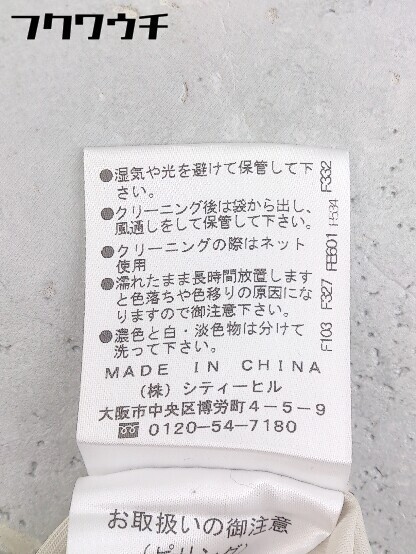 フクワウチ
●湿気や光を避けて保管して下
さい。
●クリーニング後は袋から出し、
風通しをして保管して下さい。
●クリーニングの際はネット
使用
●濡れたまま長時間放置します
と色落ちや色移りの原因にな
りますので御注意下さい。
●濃色と白・淡色物は分けて
洗って下さい。
F103 F327 FB601 F534 F332
MADE IN CHINA
(株) シティーヒル
大阪市中央区博労町4-5-9
0120-54-7180
お取扱いの御注意
(ピリング)